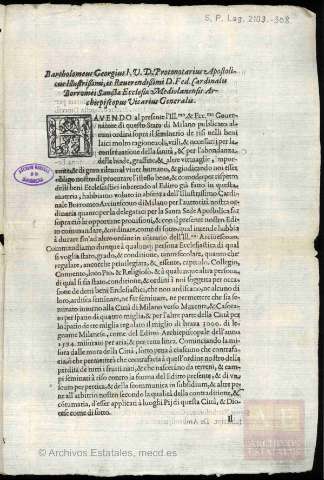 S. P. Leg. 2103.-308.
Bartholomeus Georgius I. V. D. Protonotarius Apostoli-
cus Illustrissimi, et Reuerendissimi D. Fed. Cardinalis
Borromei Sanctæ Ecclesiæ Mediolanensis Ar-
chiepiscopus Vicarius Generalis.
HAVENDO al presente l'Ill.mo & Ecc.mo Gouer-
natore di questo Stato di Milano publicata alcuni
ordini sopra il seminerio de risi nelli beni
luci molto ragioneuoli, vtili, & necessarij per la
conseruatione della sanità, & per l'abbondanza
delle biade, grassine, & altre vittuaglie
& di grano al viuer humano, & giudicando noi esse
Editto
di beni Ecclesiastici
materia, habbiamo voluto in absenza dell'Illustrissimo Cardi-
nale Borromeo Arciuescouo di Milano per l'auttorità nostra or-
dinaria quanto per la delegataci per la Santa Sede Apostolica sia
sopra ciò le opportune prouisioni, & con il presente nostro Editto
comandare, & ordinare, come di sotto, qual intende habbia
à durare fin'ad altro ordine in
Commandiamo dunque à qualunque persona Ecclesiastica di qual
si voglia stato, grado, & conditione, tanto secolare, quanto che
regolare, ancorche priuilegiata, & essente, capitolo, Collegio,
Conuento, loco Pio, & Religioso, & à qualunque altra persona,
di qual si sia stato, conditione, & ordine à noi soggetta per occa-
sione de detti beni Ecclesiastici, che non ardiscano, ne alcuno di
loro, ardisca seminare, ne far seminare, ne permettere che si se-
minato intorno alla Città di Milano verso Marenta, & Casora-
te per spatio di quattro miglia, & per l'altre parte della Città per
lo spatio de tre miglia regolato il miglio di braza 3000. di le-
gname Milanese, come del Editto Archiepiscopale dell'anno
1594. misurato per aria, & per retta linea. Cominciando la misu-
ra dalle mura della Città, sotto pena à ciascuno che contrafa-
ciò che permetterà che contrafaccia à quest'ordine nostro della
perdita de tutti i frutti nati, & che nasceranno da terreni, & cam-
pi seminati à riso contro la forma del Editto presente, & di
secura per pertica, & della scommunica in subsidium, & altre pe-
ne all'arbitrio nostro secondo la qualità della contraditione, &
contumacia, d'esser applicati à luoghi Pij di questa Città, & Dio-
cese come di sotto.
Il
ARCHIVOS
ESTATALES
© Archivos Estatales, mecd.es